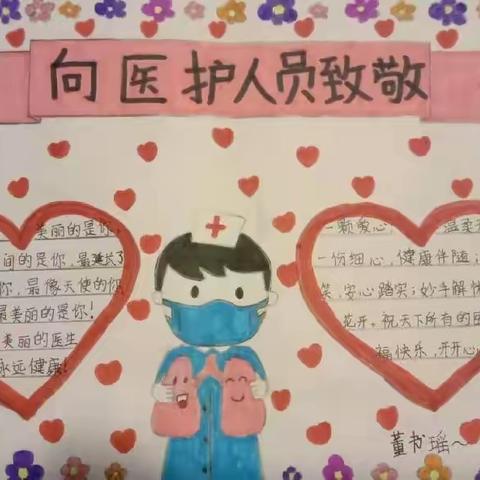 向医护人员致敬
美丽的是你,
间的是你,最
你,最像天使的你
最美丽的是你!
美丽的医生
永远健康!
一颗爱心 温柔
一份细心,健康伴随;
笑,安心踏实;妙手解
花开,祝天下所有的医
福快乐,开开心
董书瑶~